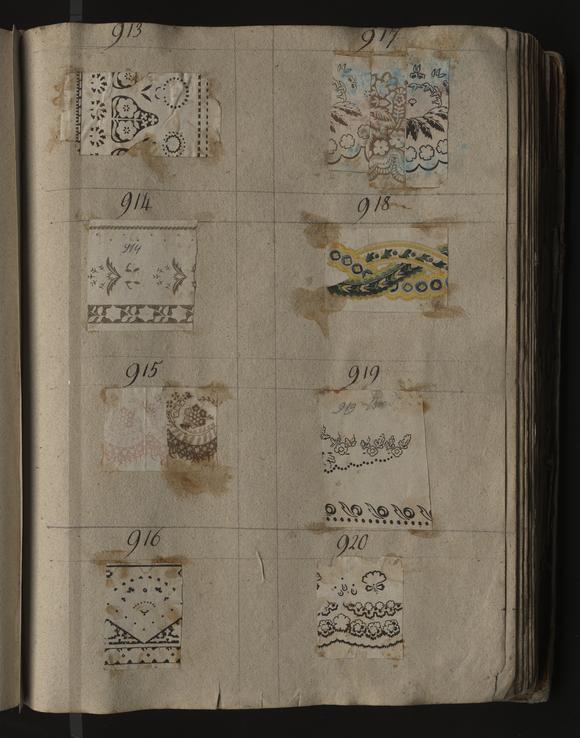 913
914
914
915
916
917
918
919
919
920